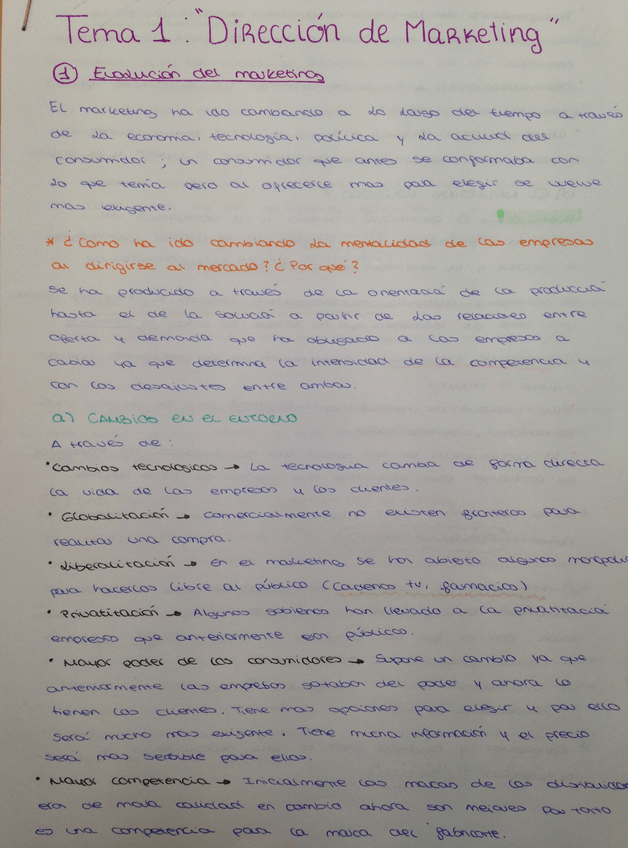 Tema 1: "Dirección de Marketing"
① Evolución del marketing
El marketing ha ido cambiando a lo largo del tiempo a través
de la economia, tecnologia, politica y la actitud del
consumidor; un consumidor que antes se conformaba con
lo que tenia pero al ofrecerle mas para elegir se vuelve
mas exigente.
* ¿Como ha ido cambiando la mentalidad de las empresas
al dirigirse al mercado? ¿Por qué?
Se ha producido a través de la orientació de la producció
hasta el de la solució a partir de las relaciones entre
oferta y demanda que ha obligado a las empresas a
cabiar ya que determina la intensidad de la competencia y
con los desajustes entre ambas.
a) CAMBIOS EN EL ENTORNO
A través de:
• Cambios tecnologicos → La tecnologia cambia de forma directa
la vida de las empresas y los clientes.
• Globalización → Comercialmente no existen fronteras para
realizar una compra.
• Liberalización → En el marketing se han abierto algunos monopolios
para hacerlos libre al público (Cadenas tv, farmacias)
• Privatización → Algunos gobiernos han llevado a la privatizació
empresas que anteriormente eran públicas.
• Mayor poder de los consumidores → Supone un cambio ya que
anteriormente las empresas gozaban del poder y ahora lo
tienen los clientes. Tiene mas opciones para elegir y por ello
será mucho mas exigente. Tiene mucha información y el precio
será mas sensible para ellos.
• Mayor competencia → Inicialmente las marcas de los distribuidores
eran de mala calidad en cambio ahora son mejores por tanto
es una competencia para la marca del fabricante.